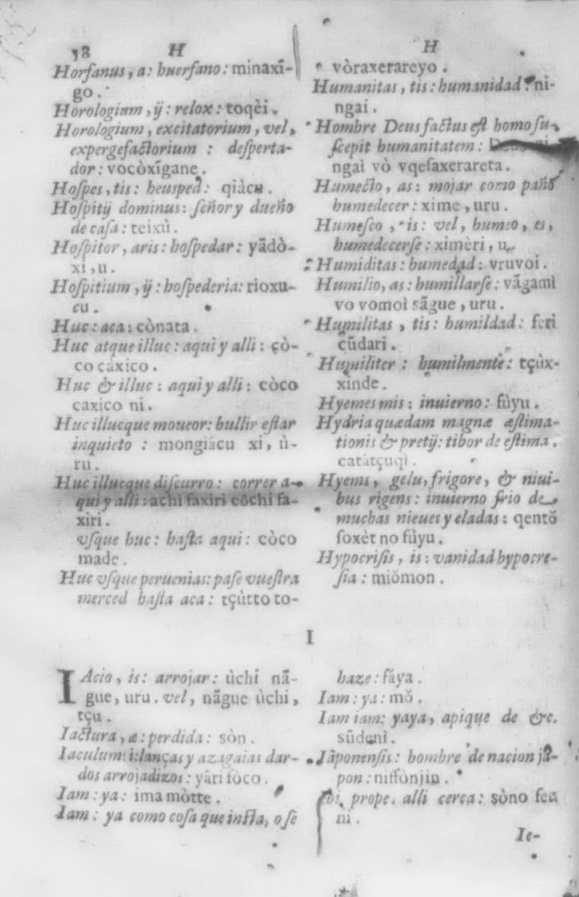 58 H
Horfanus, a: huerfano: minaxĩ-
go.
Horologium, ÿ: relox: toqèi.
Horologium, excitatorium, vel,
expergefactorium : desperta-
dor: vocòxĩgane.
Hospes, tis: heusped: qiàcu.
Hospitÿ dominus: señor y dueño
de casa: teixũ.
Hospitor, aris: hospedar: yãdò-
xi, u.
Hospitium, ÿ: hospederia: rioxu-
cu.
Huc: aca: cònata.
Huc atque illuc: aqui y alli: çò-
co caxico.
Huc & illuc: aqui y alli: còco
caxico ni.
Huc illucque moueor: bullir estar
inquieto: mongiàcu xi, ù-
ru.
Huc illucque discurro: correr a-
qui y alli: achi faxiri cŏchi fa-
xiri.
vsque huc: hasta aqui: còco
made.
Huc vsque peruenias: pase vuestra
merced hasta aca: tçùtto to-
H
vòraxerareyo.
Humanitas, tis: humanidad: ni-
ngai.
Hombre Deus factus est homo su-
scepit humanitatem: ni-
ngai vò vqesaxerareta.
Humecto, as: mojar como paño
humedecer: xime, uru.
Humesco, is: vel, humeo, es,
humedecerse: ximèri, u.
Humiditas: humedad: vruvoi.
Humilio, as: humillarse: vãgamì
vo vomoì sãgue, uru.
Humilitas, tis: humildad: feri
cũdari.
Humiliter: humilmente: tçùx-
xinde.
Hyemes mis: inuierno: fùyu.
Hydria quædam magnæ æstima-
tionis & pretÿ: tibor de estima.
catatçuqi.
Hyemi, gelu, frigore, & niui-
bus rigens: inuierno frio de
muchas nieues y eladas: qentŏ
soxèt no fùyu.
Hypocrisis, is: vanidad hypocre-
sia: miŏmon.
I
IAcio, is: arrojar: ùchi nã-
gue, uru. vel, nãgue ùchi,
tçu.
Iactura, æ: perdida: sòn.
Iaculum: lanças y azagaias dar-
dos arrojadizos: yàri fòco.
Iam: ya: ima mòtte.
Iam: ya como cosa que insta, o se
haze: fàya.
Iam: ya: mŏ.
Iam iam: yaya, apique de &c.
sũdeni.
Iaponensis: hombre de nacion ja-
pon: niffonjin.
Ibi, prope. alli cerca: sòno fea
ni.
Ie-